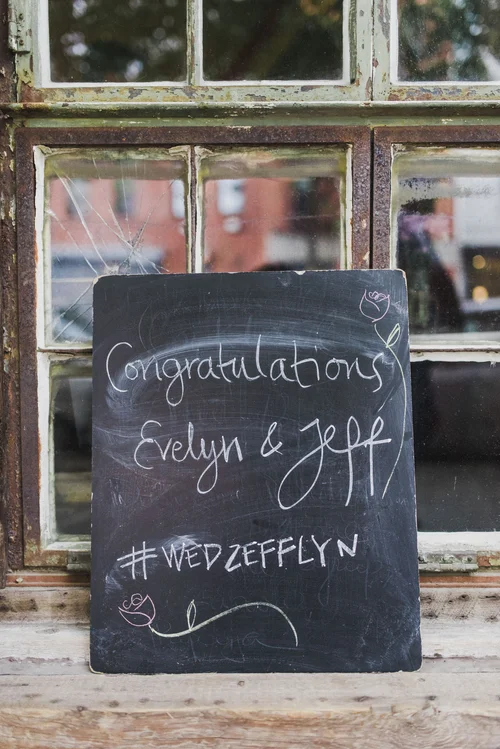 Congratulations
Evelyn & Jeff
#WEDZEFFLYN